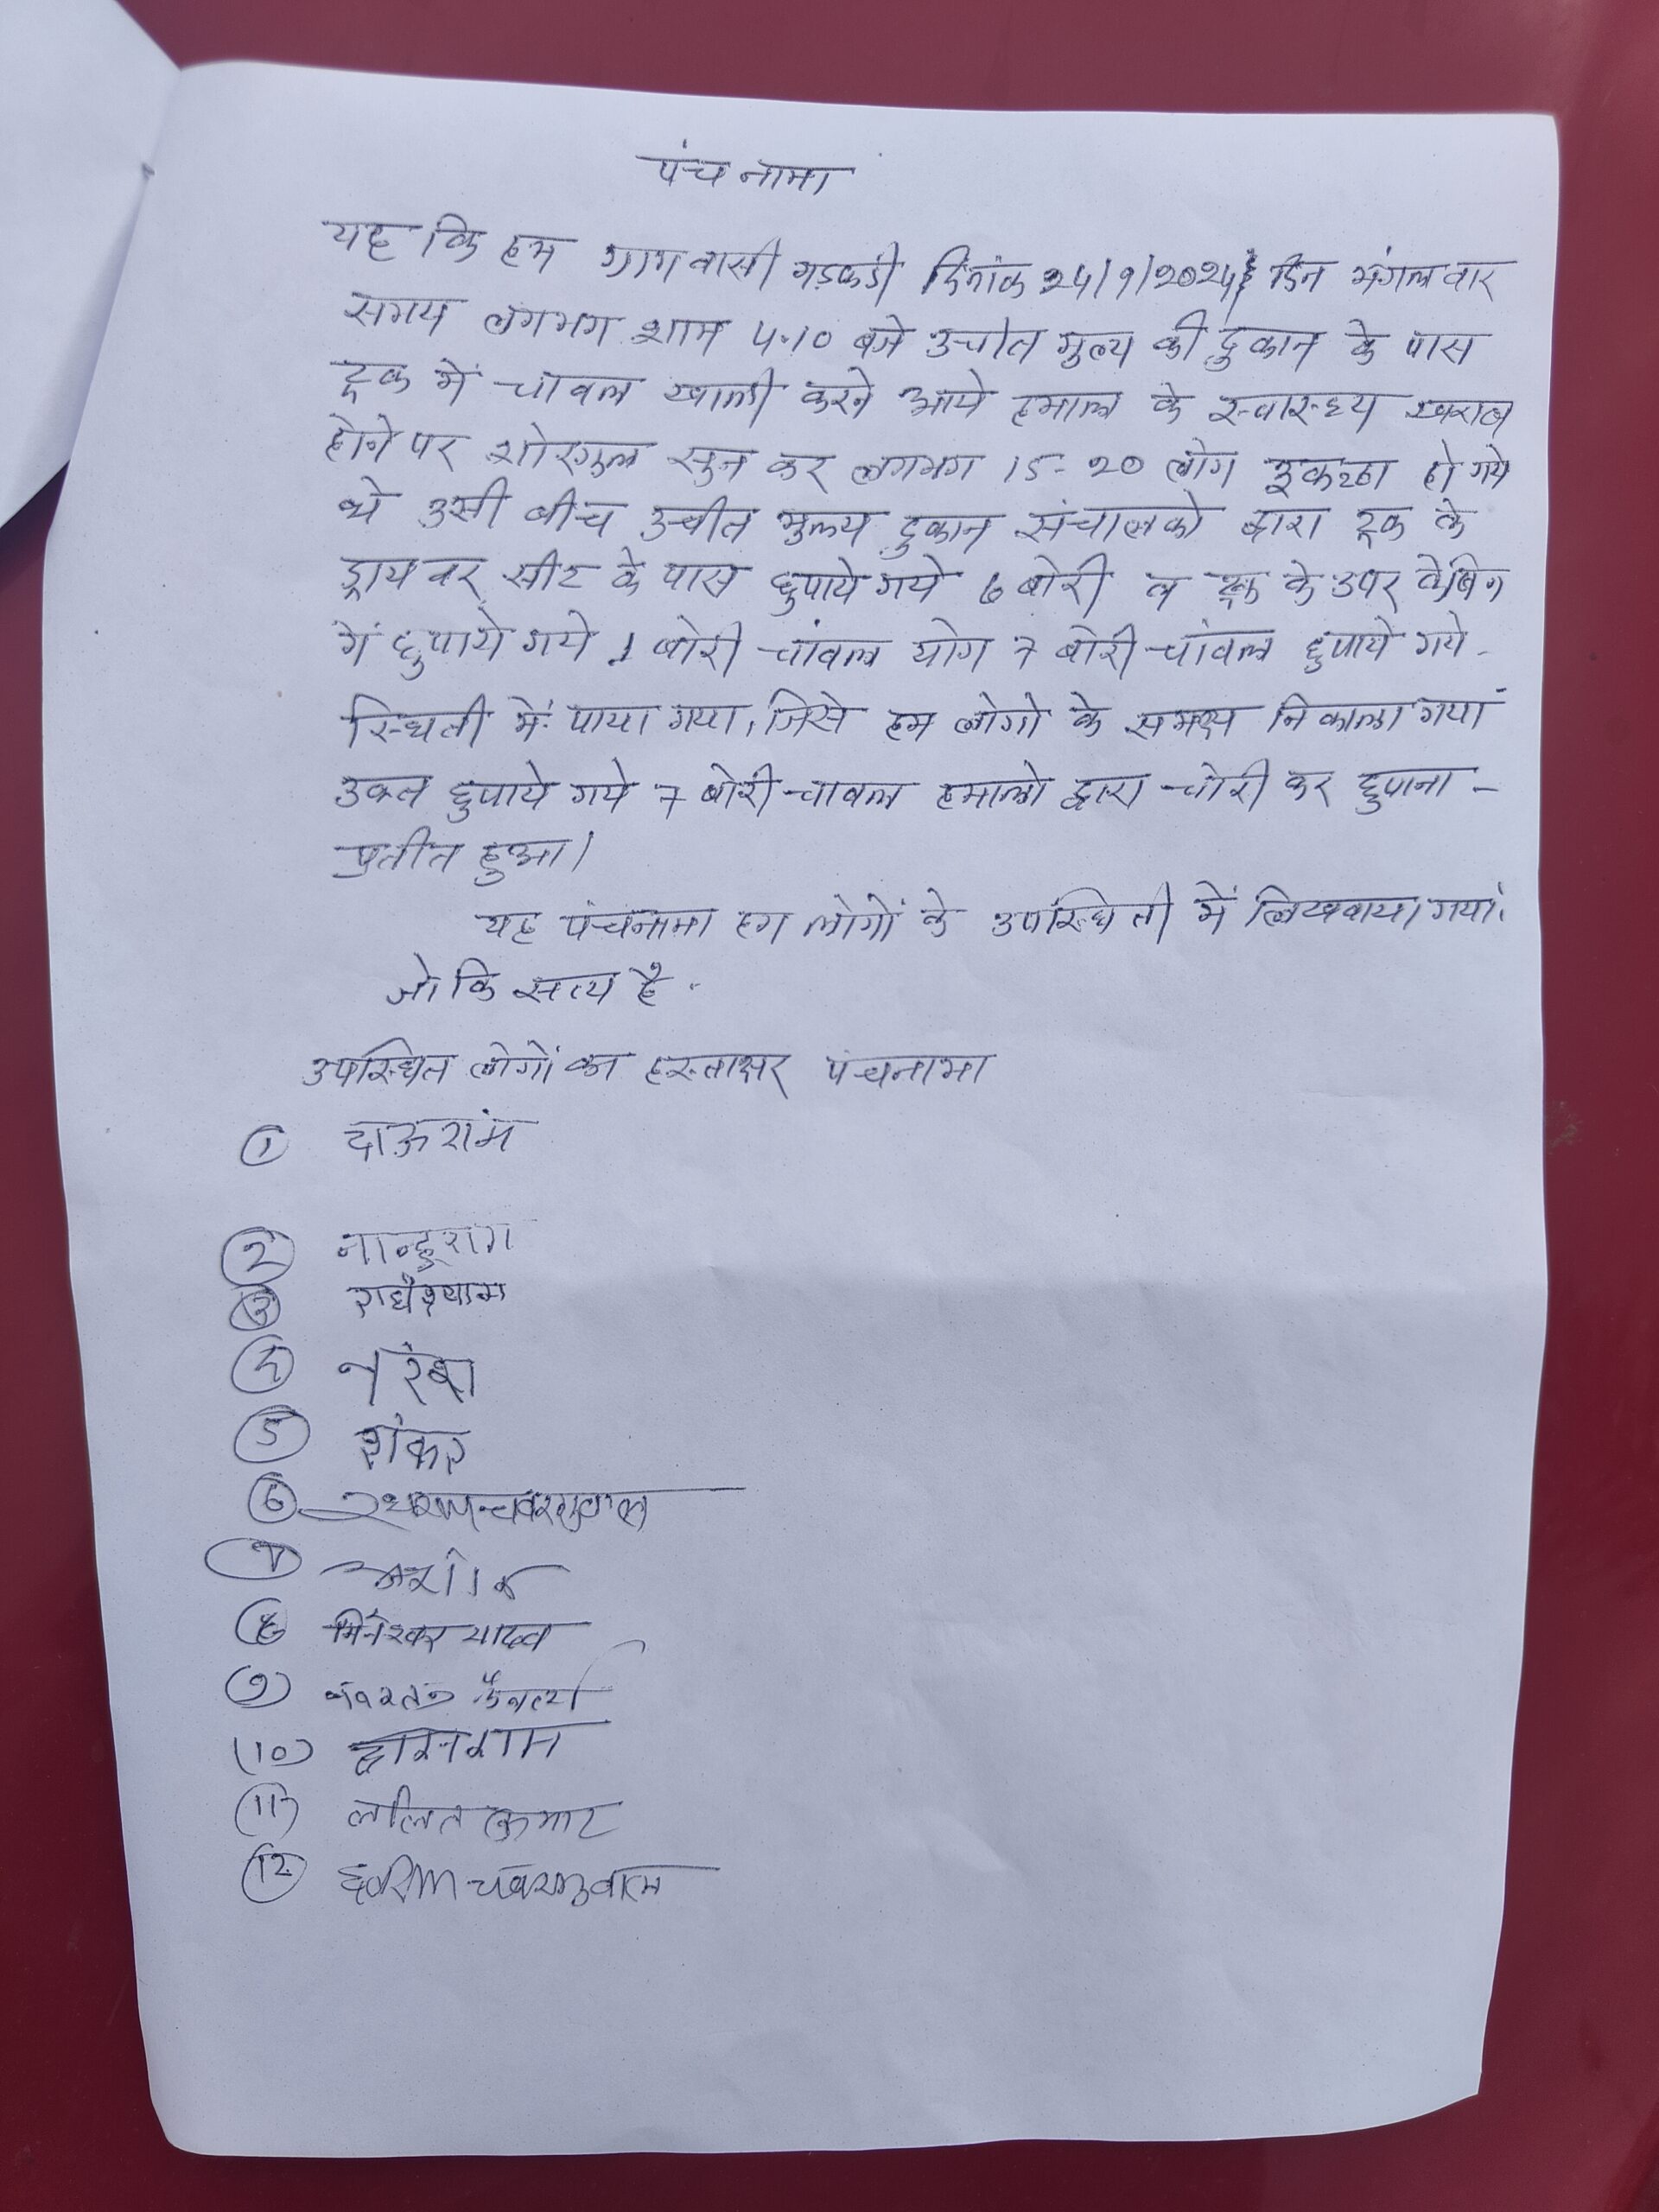 पंचनामा
यह कि हम ग्रामवासी भड़कडी दिनांक 24/9/2024 दिन मंगलवार
समय लगभग शाम 4.10 बजे उचीत मुल्य की दुकान के पास
ट्रक में चांवल खाली करने आये हमाल के स्वास्थ्य खराब
होने पर शोरगुल सुन कर लगभग 15-20 लोग इकठ्ठा हो गये
थे उसी बीच उचीत मुल्य दुकान संचालको द्वारा ट्रक के
ड्रायवर सीट के पास छुपाये गये 6 बोरी व ट्रक के उपर केबिन
में छुपाये गये 1 बोरी चांवल योग 7 बोरी चांवल छुपाये गये
स्थिती में पाया गया, जिसे हम लोगो के समक्ष निकाला गया
उक्त छुपाये गये 7 बोरी चावल हमालो द्वारा चोरी कर छुपाना -
प्रतीत हुआ।
यह पंचनामा हम लोगों के उपस्थिती में लिखवाया गया।
जो कि सत्य है.
उपस्थित लोगों का हस्ताक्षर पंचनामा
① दाऊराम
② नान्हुराम
③ राधेश्याम
④
⑤ शंकर
⑥
⑦
⑧ मिनेश्वर यादव
⑨
(10)
(11) ललित कुमार
(12)